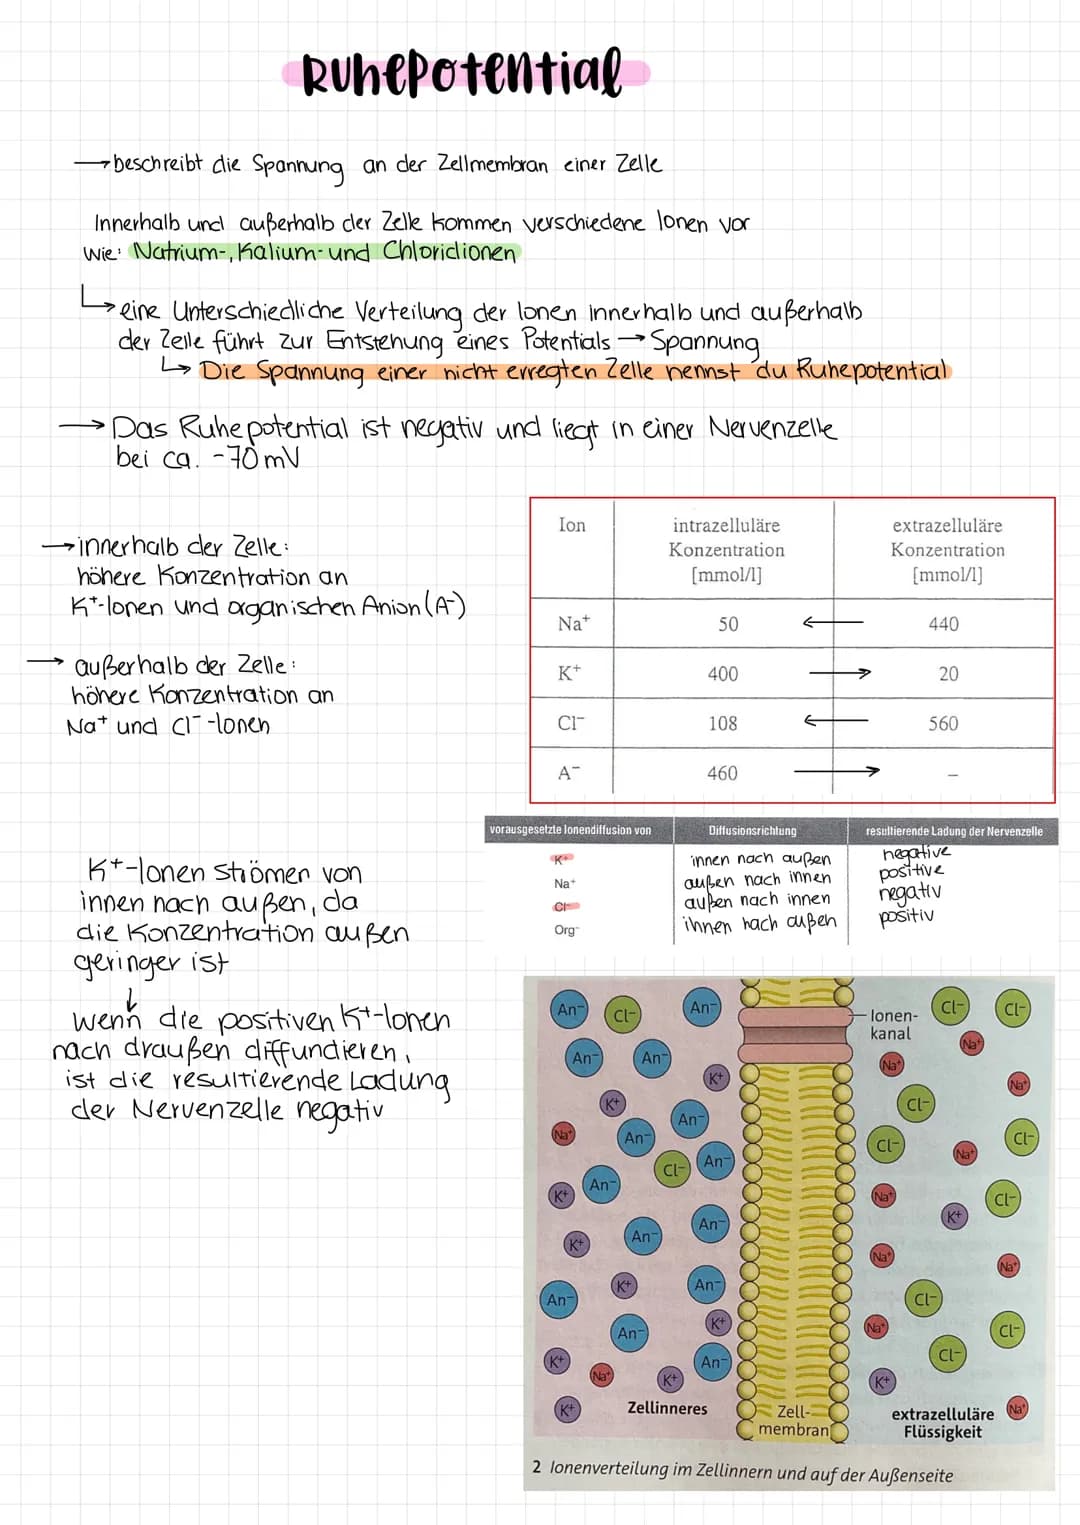 Ruhepotential
→ beschreibt die Spannung an der Zellmembran einer Zelle
Innerhalb und außerhalb der Zelle kommen verschiedene Ionen vor
wie: Natrium-, Kalium- und Chloridionen
↳ eine Unterschiedliche Verteilung der Ionen Innerhalb und außerhalb
der Zelle führt zur Entstehung eines Potentials → Spannung
↳ Die Spannung einer nicht erregten Zelle nennst du Ruhepotential
→ Das Ruhepotential ist negativ und liegt in einer Nervenzelle
bei ca. -70mV
→ innerhalb der Zelle:
höhere Konzentration an
K⁺-Ionen und organischen Anion (A⁻)
→ außerhalb der Zelle:
höhere Konzentration an
Na⁺ und Cl⁻-Ionen
Ion intrazelluläre Konzentration [mmol/l] extrazelluläre Konzentration [mmol/l]
Na⁺ 50 ← 440
K⁺ 400 → 20
Cl⁻ 108 ← 560
A⁻ 460 → –
vorausgesetzte Ionendiffusion von Diffusionsrichtung resultierende Ladung der Nervenzelle
K⁺ innen nach außen negative
Na⁺ außen nach innen positive
Cl⁻ außen nach innen negativ
Org⁻ innen nach außen positiv
K⁺-Ionen strömen von
innen nach außen, da
die Konzentration außen
geringer ist
↓
wenn die positiven K⁺-Ionen
nach draußen diffundieren,
ist die resultierende Ladung
der Nervenzelle negativ
An⁻ Cl⁻ An⁻ Ionen- Cl⁻ Cl⁻
kanal Na⁺
An⁻ An⁻ Na⁺
K⁺ Na⁺
K⁺ An⁻ Cl⁻
Na⁺ An⁻ Cl⁻ Cl⁻
Cl⁻ An⁻ Na⁺
K⁺ An⁻ Na⁺ Cl⁻
An⁻ K⁺
K⁺ An⁻ Na⁺ Na⁺
K⁺ An⁻
An⁻ Cl⁻
An⁻ K⁺ Na⁺ Cl⁻
K⁺ An⁻ Cl⁻
Na⁺ K⁺ K⁺
K⁺ Zellinneres Zell- extrazelluläre Na⁺
membran Flüssigkeit
2 Ionenverteilung im Zellinnern und auf der Außenseite